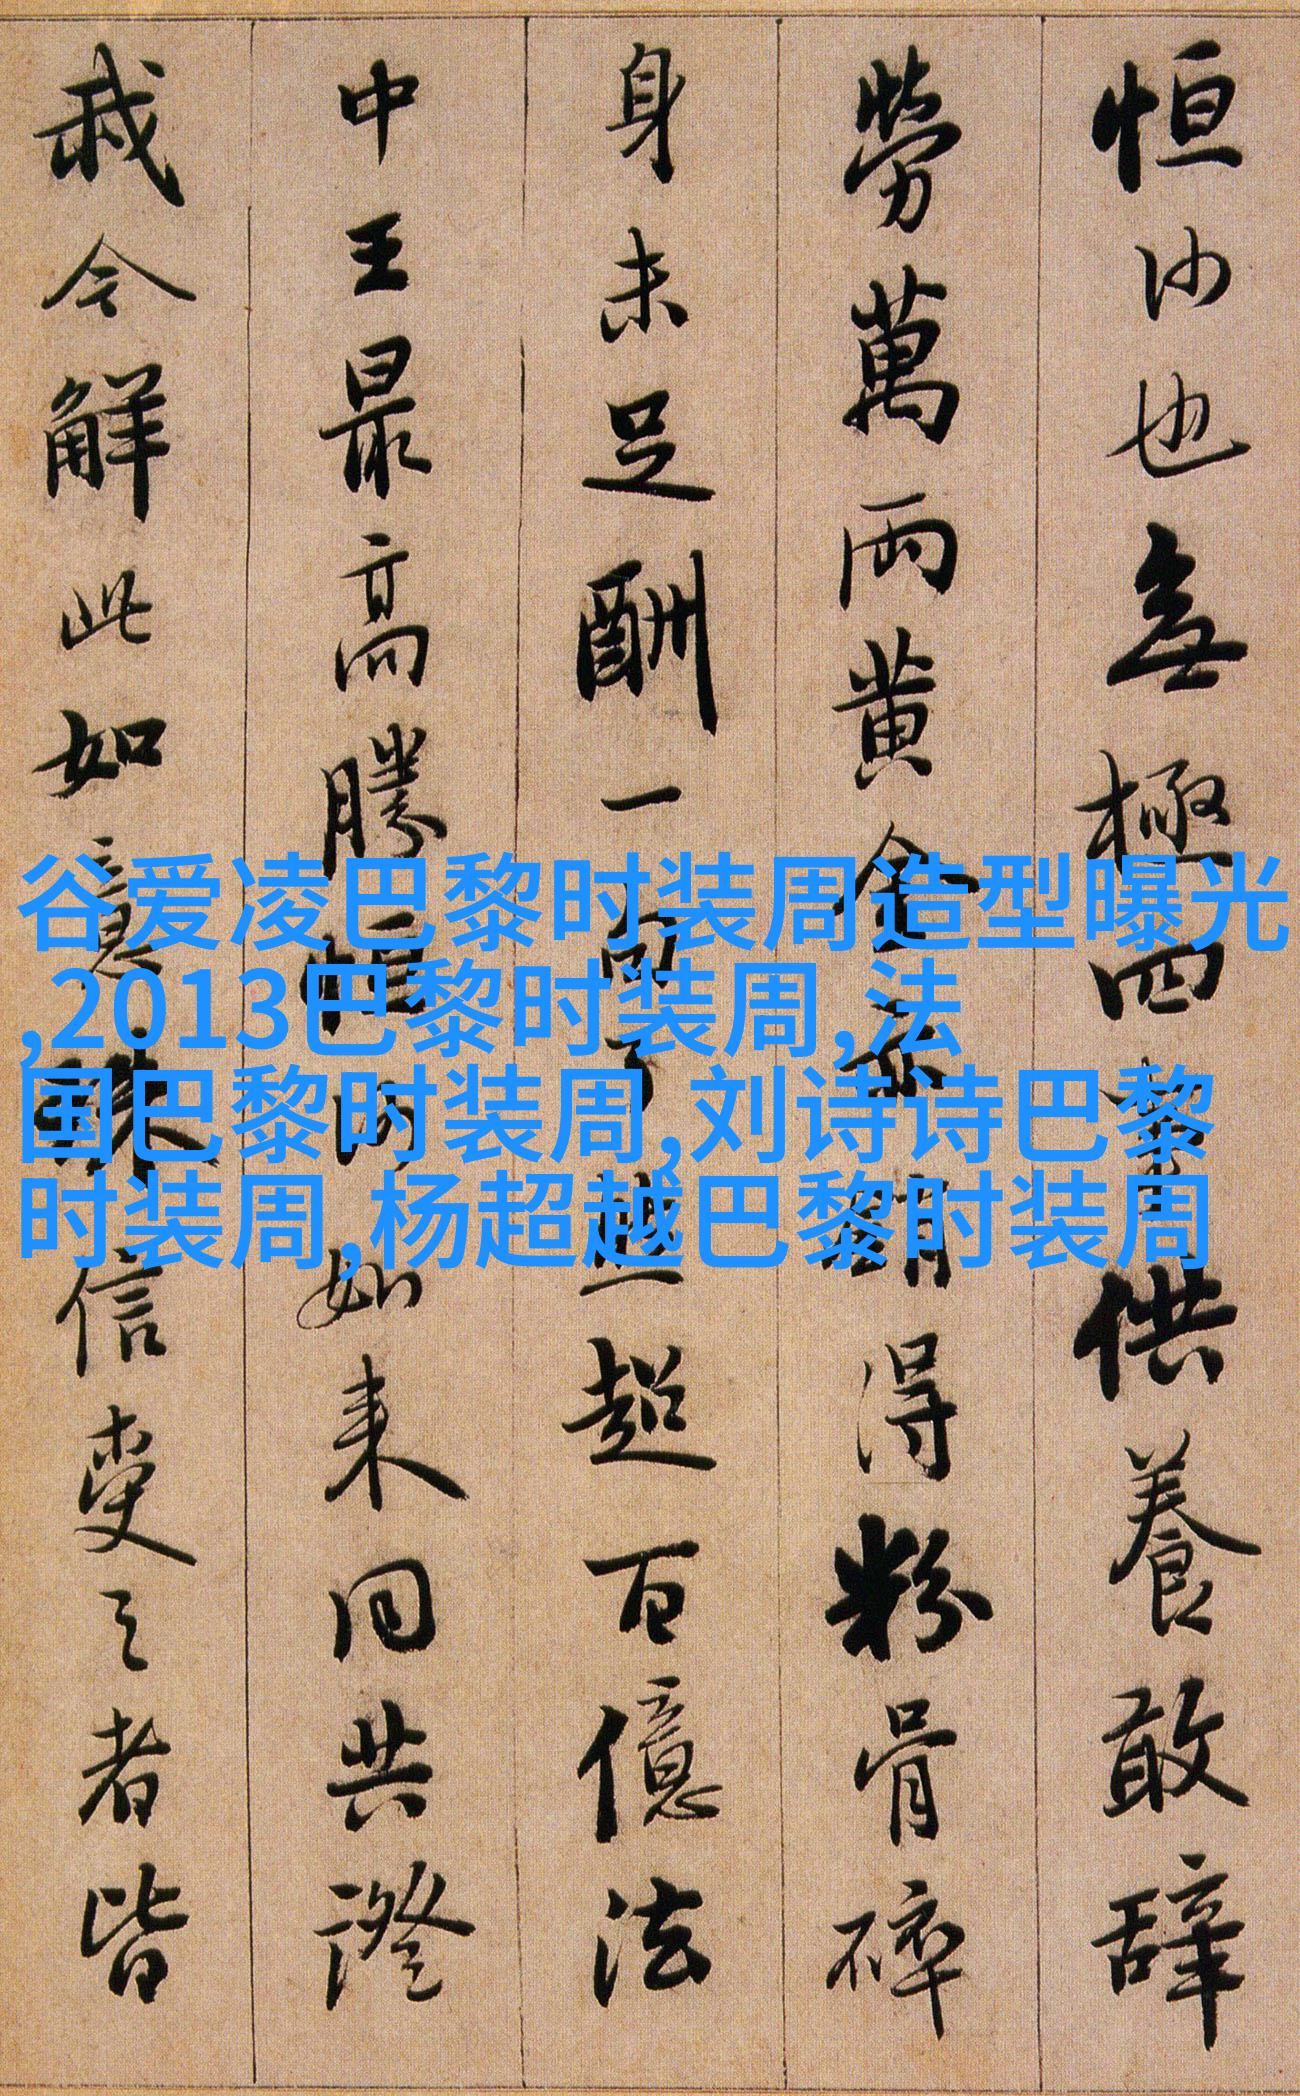 恒沙也無極四事供養敢辭
勞萬兩黃金亦銷得粉骨碎
身未足酬一句了然超百億法
中王最高勝恒沙如來同共證
我今解此如意珠信受之者皆
谷爱凌巴黎时装周造型曝光
,2013巴黎时装周,法
国巴黎时装周,刘诗诗巴黎
时装周,杨超越巴黎时装周